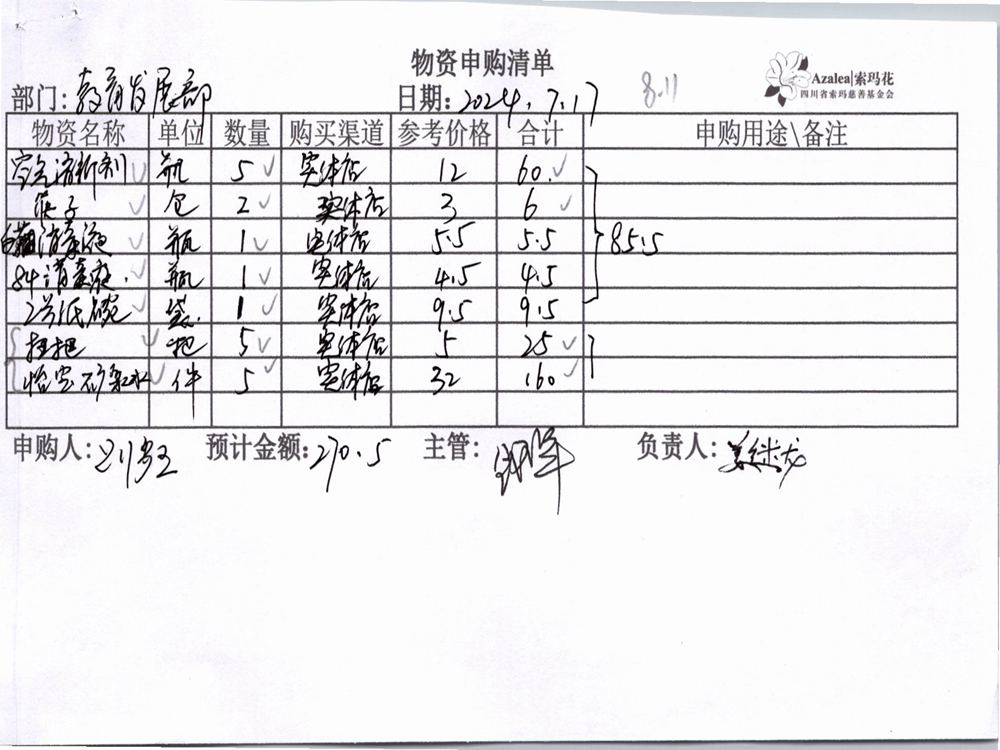 物资申购清单
Azalea|索玛花
四川省索玛慈善基金会
部门：教育发展部 日期：2024.7.17 8.11
物资名称 单位 数量 购买渠道 参考价格 合计 申购用途\备注
空气清新剂 瓶 5 实体店 12 60
筷子 包 2 实体店 3 6
消毒液 瓶 1 实体店 5.5 5.5 85.5
84消毒液 瓶 1 实体店 4.5 4.5
2号纸碗 袋 1 实体店 9.5 9.5
扫把 把 5 实体店 5 25
怡宝矿泉水 件 5 实体店 32 160
申购人： 预计金额：270.5 主管： 负责人：